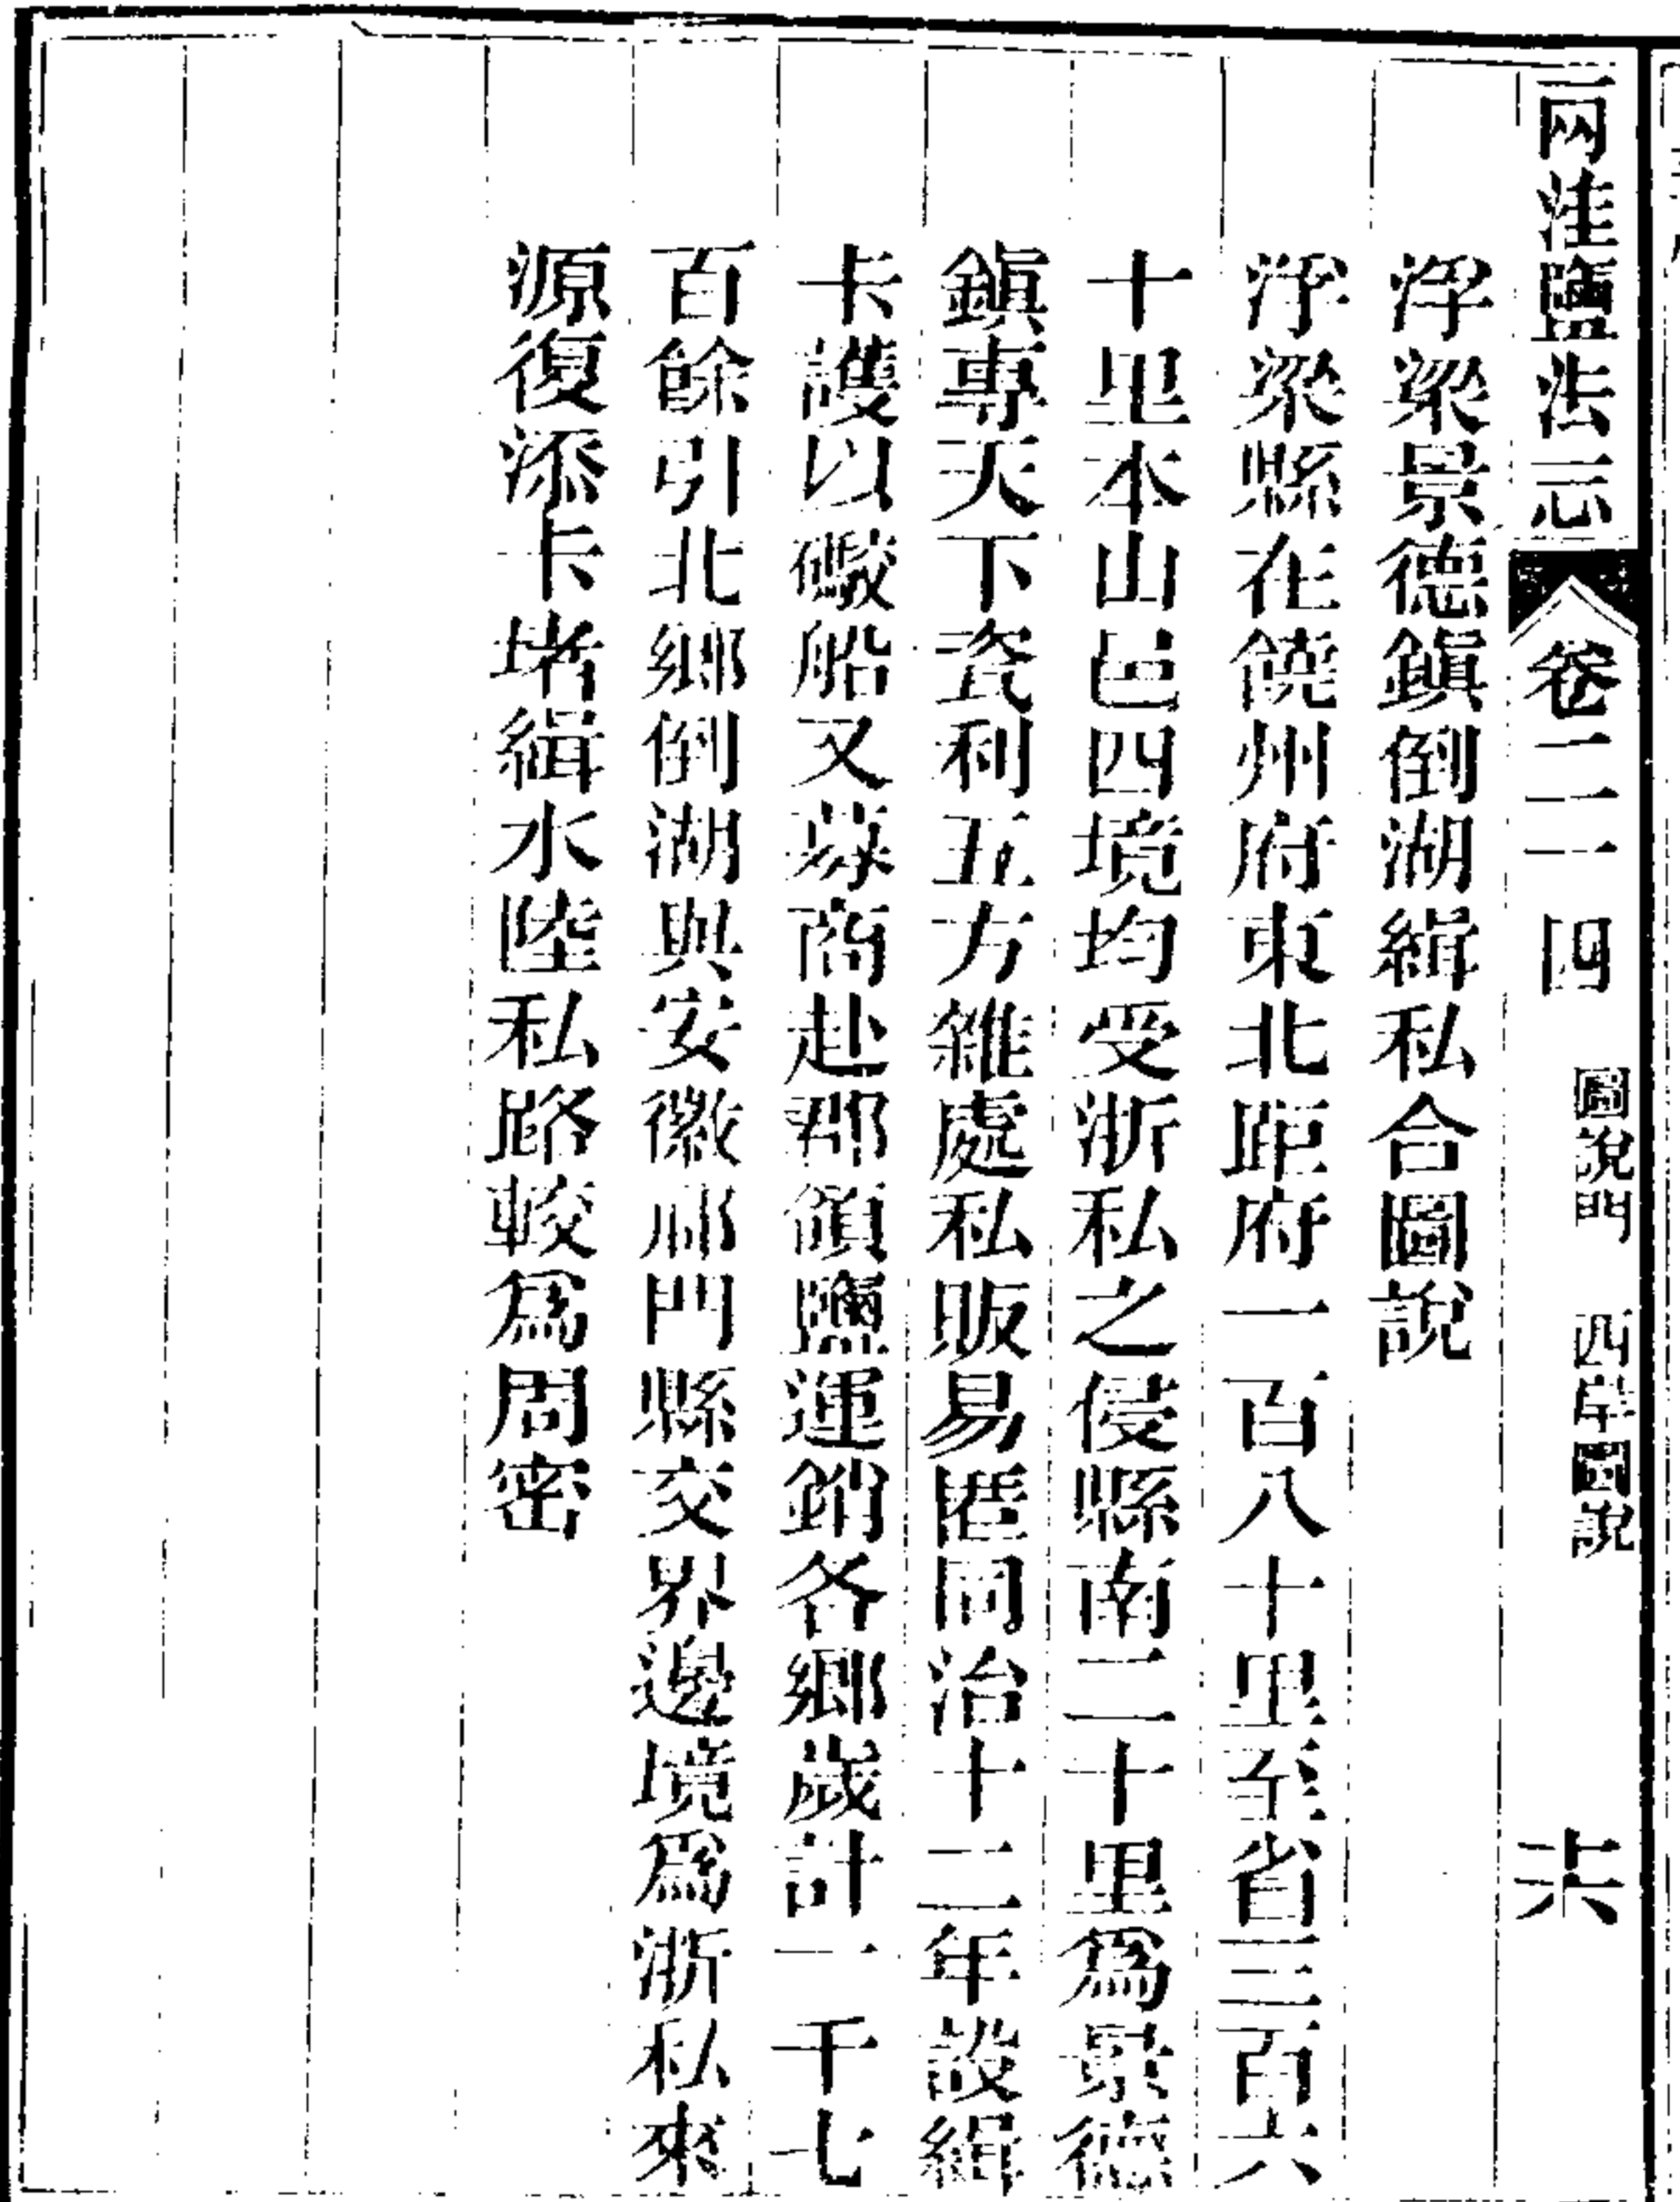 兩淮鹽法志 卷二十四 圖說門 西岸圖說 六十
浮梁景德鎭倒湖緝私合圖說
浮梁縣在饒州府東北距府一百八十里至省三百六
十里本山邑四境均受浙私之侵縣南二十里爲景德
鎭專天下瓷利五方雜處私販易匿同治十二年設緝
卡護以礮船又募商赴郡領鹽運銷各鄉歲計一千七
百餘引北鄉倒湖與安徽祁門縣交界邊境爲浙私來
源復添卡堵緝水陸私路較爲周密